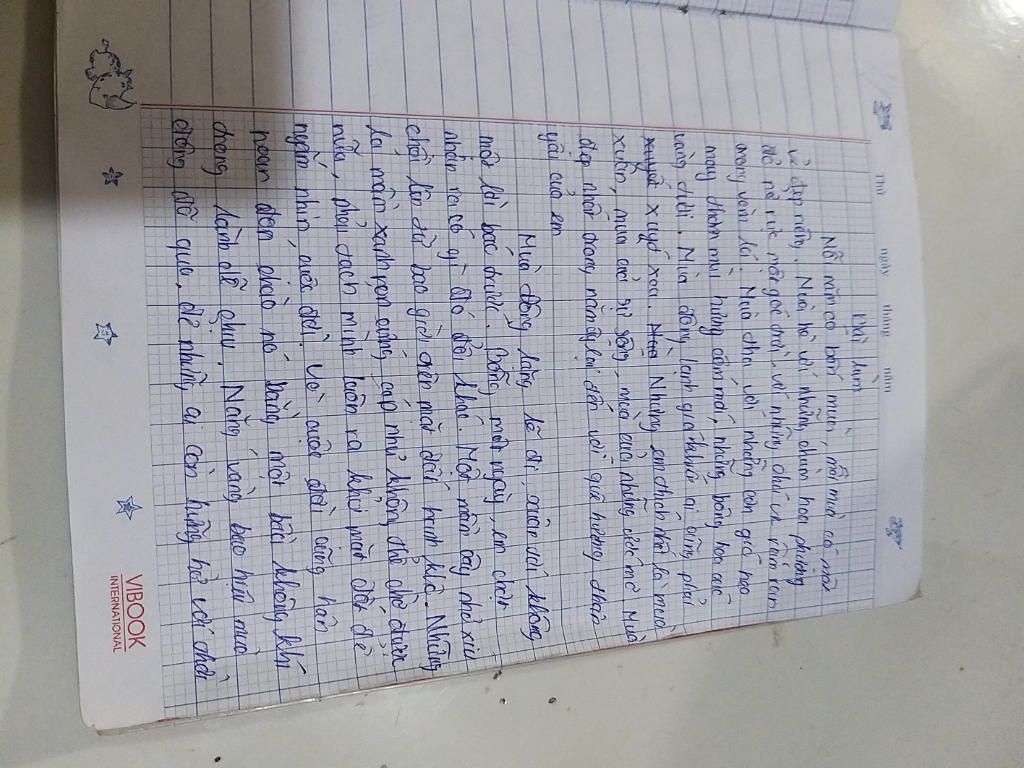 Thứ ngày tháng năm
Bài làm
Mỗi năm có bốn mùa, mỗi mùa có một
vẻ đẹp riêng. Mùa hè với những chùm hoa phượng
đỏ nở rực một góc trời, với những chú ve râm ran
trong vòm lá. Mùa thu với những cơn gió heo
may thơm mùi hương cốm mới, những bông hoa cúc
vàng tươi. Mùa đông lạnh giá khiến ai cũng phải
xuýt xoa. Nhưng em thích nhất là mùa
xuân, mùa của sự sống, mùa của những ước mơ. Mùa
đẹp nhất trong năm ấy lại đến với quê hương thân
yêu của em
Mùa đông lặng lẽ đi, cuốn theo không
một lời báo trước. Bỗng một ngày, em chợt
nhận ra có gì đó đổi khác. Một mầm cây nhỏ xíu
chồi lên từ bao giờ trên mặt đất khô. Những
lá mầm xanh non cứng cáp như không thể chờ được
nữa, phải tách mình luồn ra khỏi màn đêm để
ngắm nhìn cuộc đời. Và cuộc đời cũng hân
hoan đón chào nó bằng một bầu không khí
trong lành dễ chịu. Nắng vàng báo hiệu mùa
đông đã qua, để những ai còn hững hờ với thời
VIBOOK
INTERNATIONAL